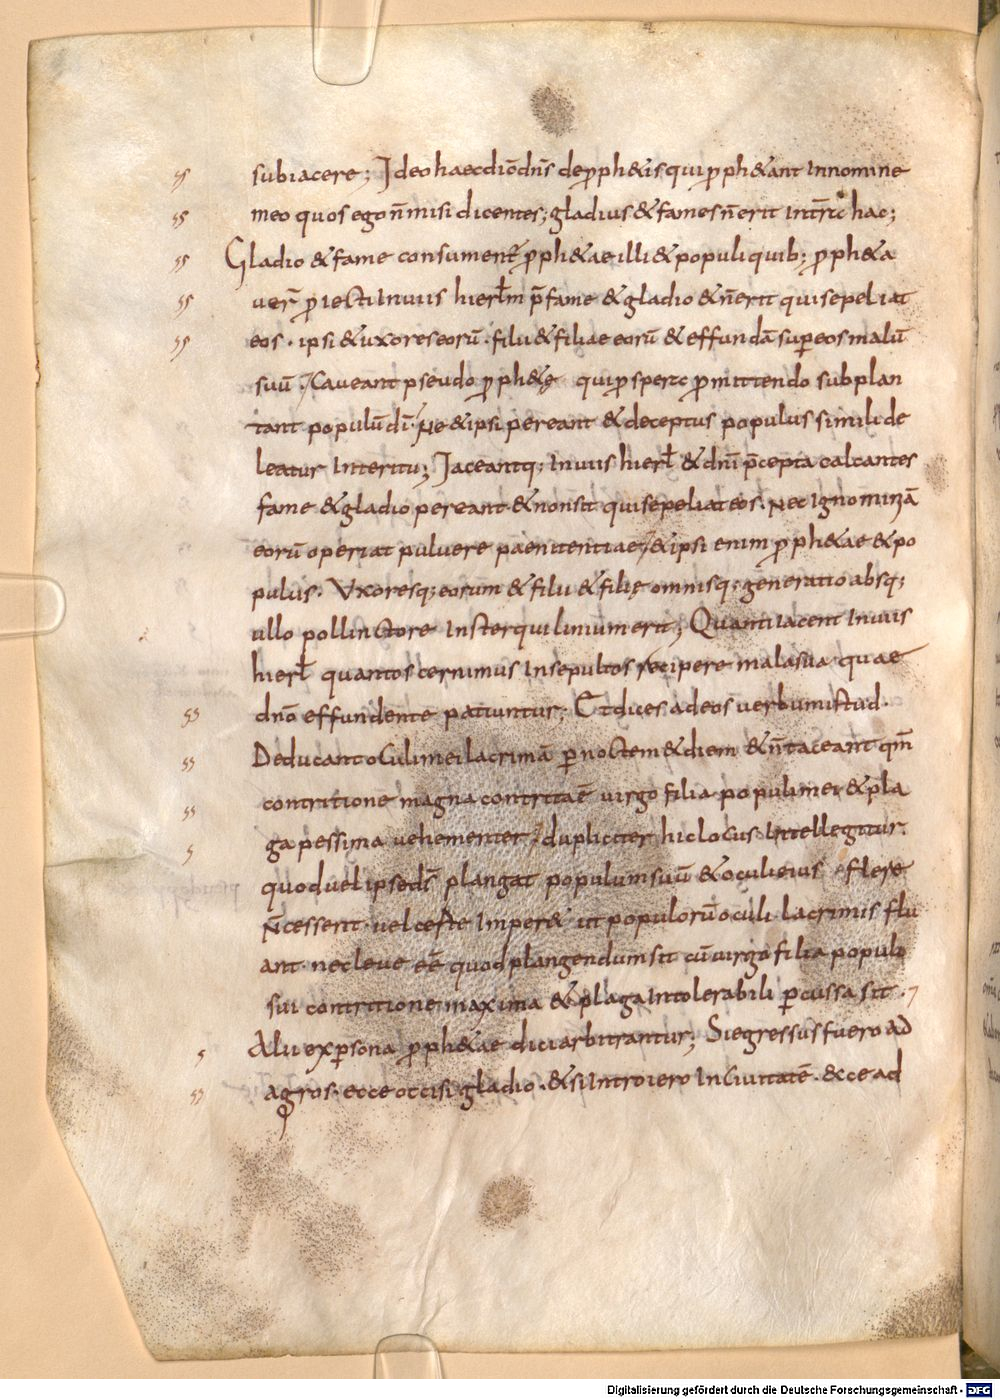 subiacere; Ideo haec dic̄ dn̄s de ꝓph&is qui ꝓph&ant In nomine
meo quos ego n̄ misi dicentes; gladius & fames n̄ erit In tr̄a hac;
Gladio & fame consument̄ ꝓph&ae illi & populi quib; ꝓph&a
uer̄ ꝓiecti In uiis hierl̄m p̄ fame & gladio & n̄ erit qui sepeliat
eos · ipsi & uxores eorū · filii & filiae eorū & effundā suꝑ eos malū
suū · Caueant pseudo ꝓph&ę qui ꝓspera ꝓmittendo subplan
tant populū dī · Ne & ipsi pereant & deceptus populus simili de
leatur Interitu; Iaceantq; In uiis hierl̄ & dn̄i p̄cepta calcantes
fame & gladio pereant & non sit qui sepeliat eos. Nec Ignominiā
eorū operiat puluere paenitentiae, & ipsi enim ꝓph&ae & po
pulus. Vxoresq; eorum & filii & filię omnisq; generatio absq;
ullo pollinctore In sterquilinium erit; Quanti Iacent In uiis
hierl̄ quantos cernimus Insepultos recipere mala sua quae
dn̄o effundente patiuntur; Et dices ad eos uerbum istud.
Deducant oculi mei lacrimā ꝑ noctem & diem & n̄ taceant qm̄
contritione magna contrita ē uirgo filia populi mei & pla
ga pessima uehementer, dupliciter hic locus Intellegitur.
quod uel ipse ds̄ plangat populum suū & oculi eius flere
N̄ cessent · uel certe Imper& ut populorū oculi lacrimis flu
ant · nec leue eē quod plangendum sit cū uirgo filia populi
sui contritione maxima & plaga Intolerabili ꝑcussa sit .
Alii ex ꝑsona ꝓph&ae dici arbitrantur; Si egressus fuero ad
agros · ecce occisi gladio · & si Introiero In ciuitatē · & ce ad
Digitalisierung gefördert durch die Deutsche Forschungsgemeinschaft - DFG